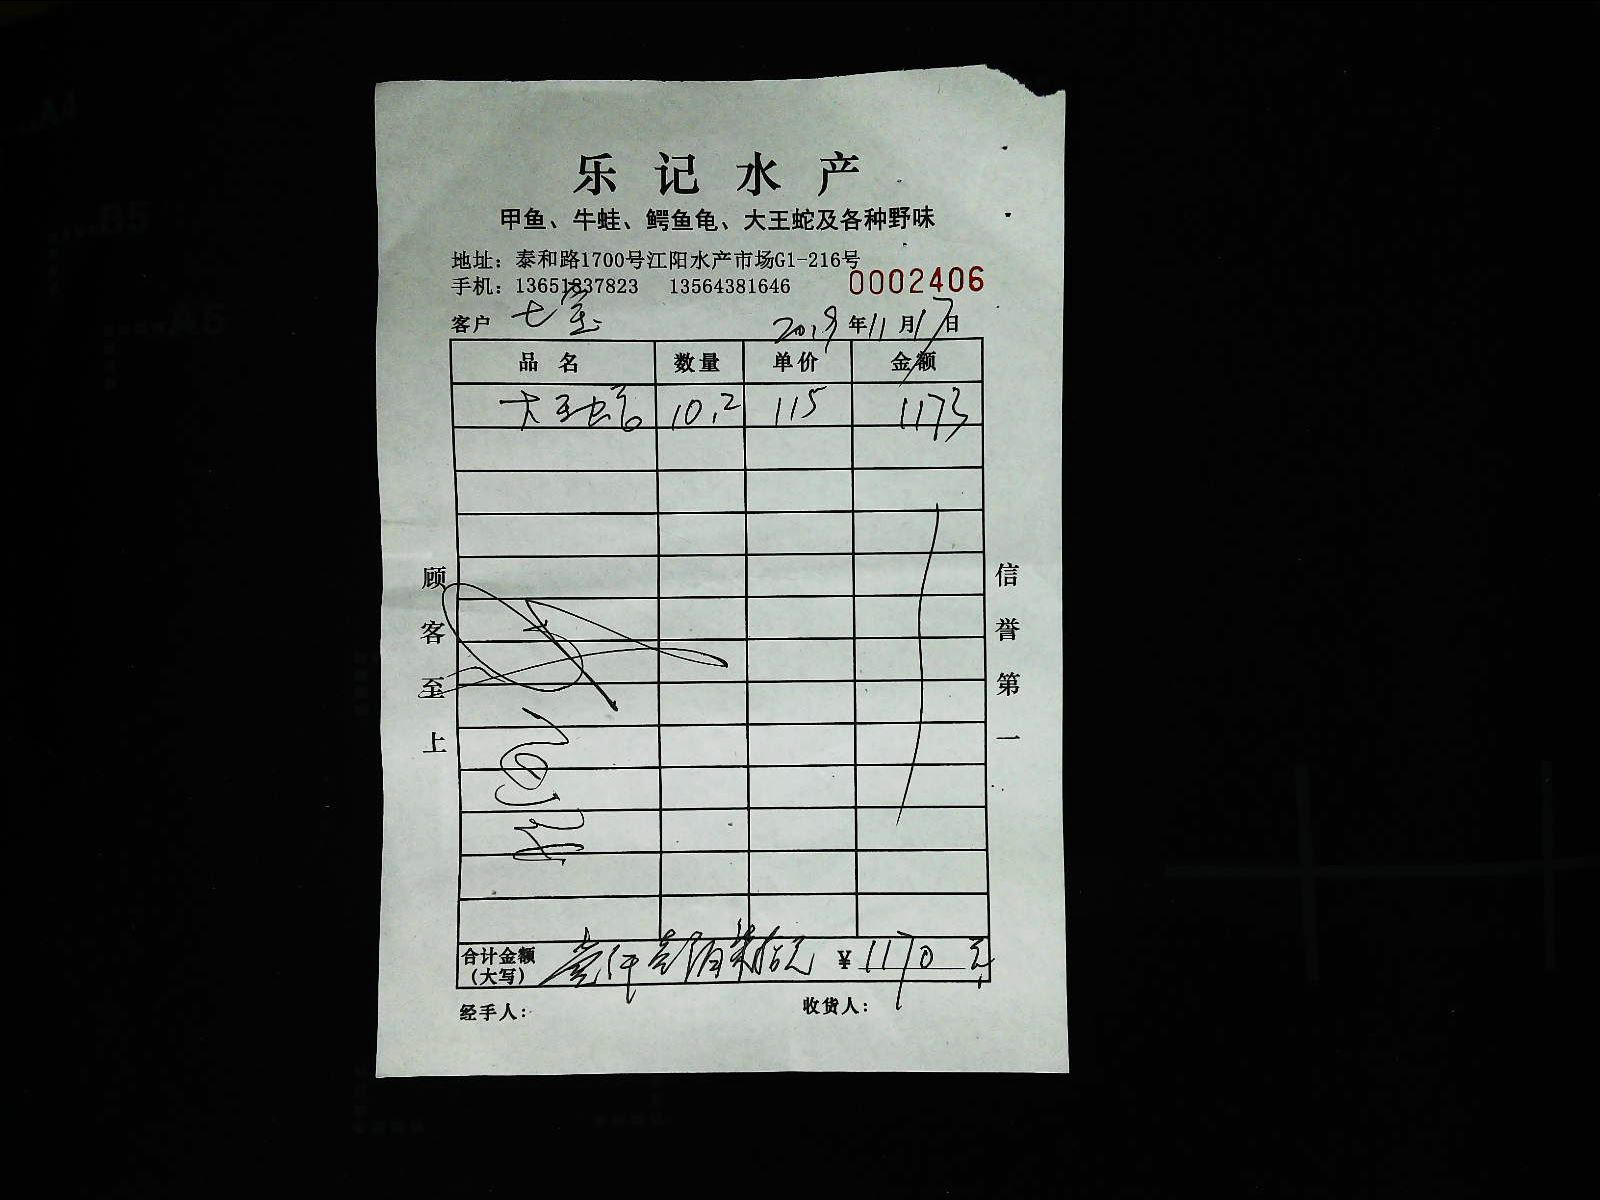 乐记水产
甲鱼、牛蛙、鳄鱼龟、大王蛇及各种野味
地址：泰和路1700号江阳水产市场G1-216号
手机：13651837823 13564381646
0002406
客户 七宝 2019年11月17日
品名 数量 单价 金额
大王蛇 10.2 115 1173
顾客至上
信誉第一
合计金额（大写） 壹仟壹佰柒拾元 ¥1170元
经手人： 收货人：